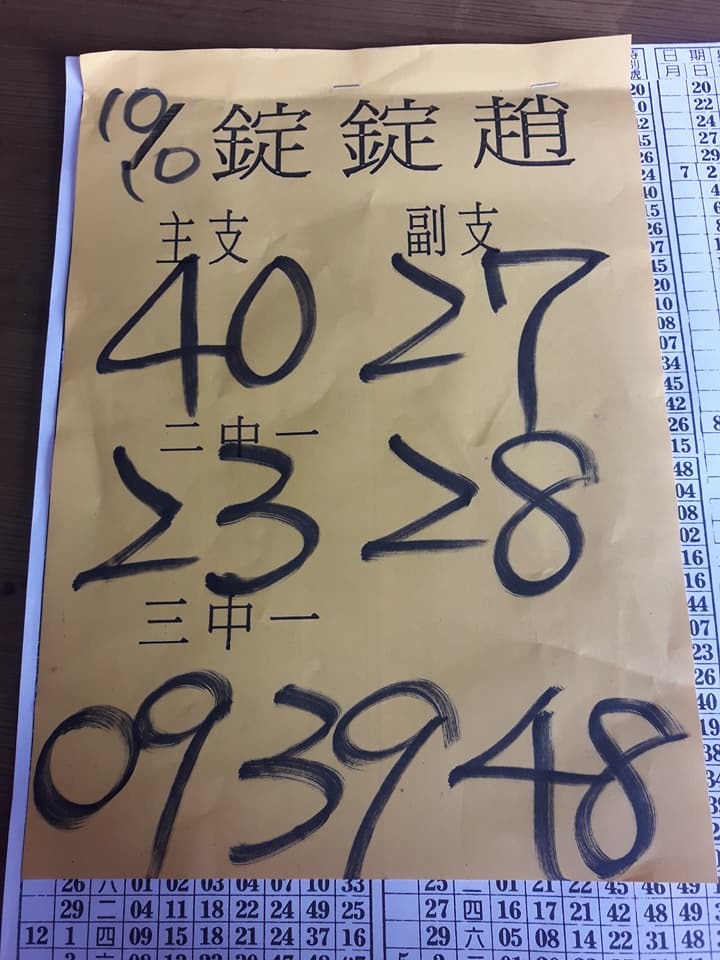 10/10 錠錠趙
主支 副支
40 27
二中一
23 28
三中一
09 39 48
特別號 日期
月 日
20 20
22
24
27
29
24 7 2
40
15
26
07
45
20
10
08
07
34
45
42
26 8
15
48
04
08
02
16
16
44
07
23
26
40
19
38
26 六 01 02 03 04 07 10 33 25 二 01 21 22 45 46 49
29 二 04 11 18 22 24 49 25 27 四 16 17 21 42 48 49
12 1 四 09 15 18 21 24 37 16 29 六 05 08 14 31 48